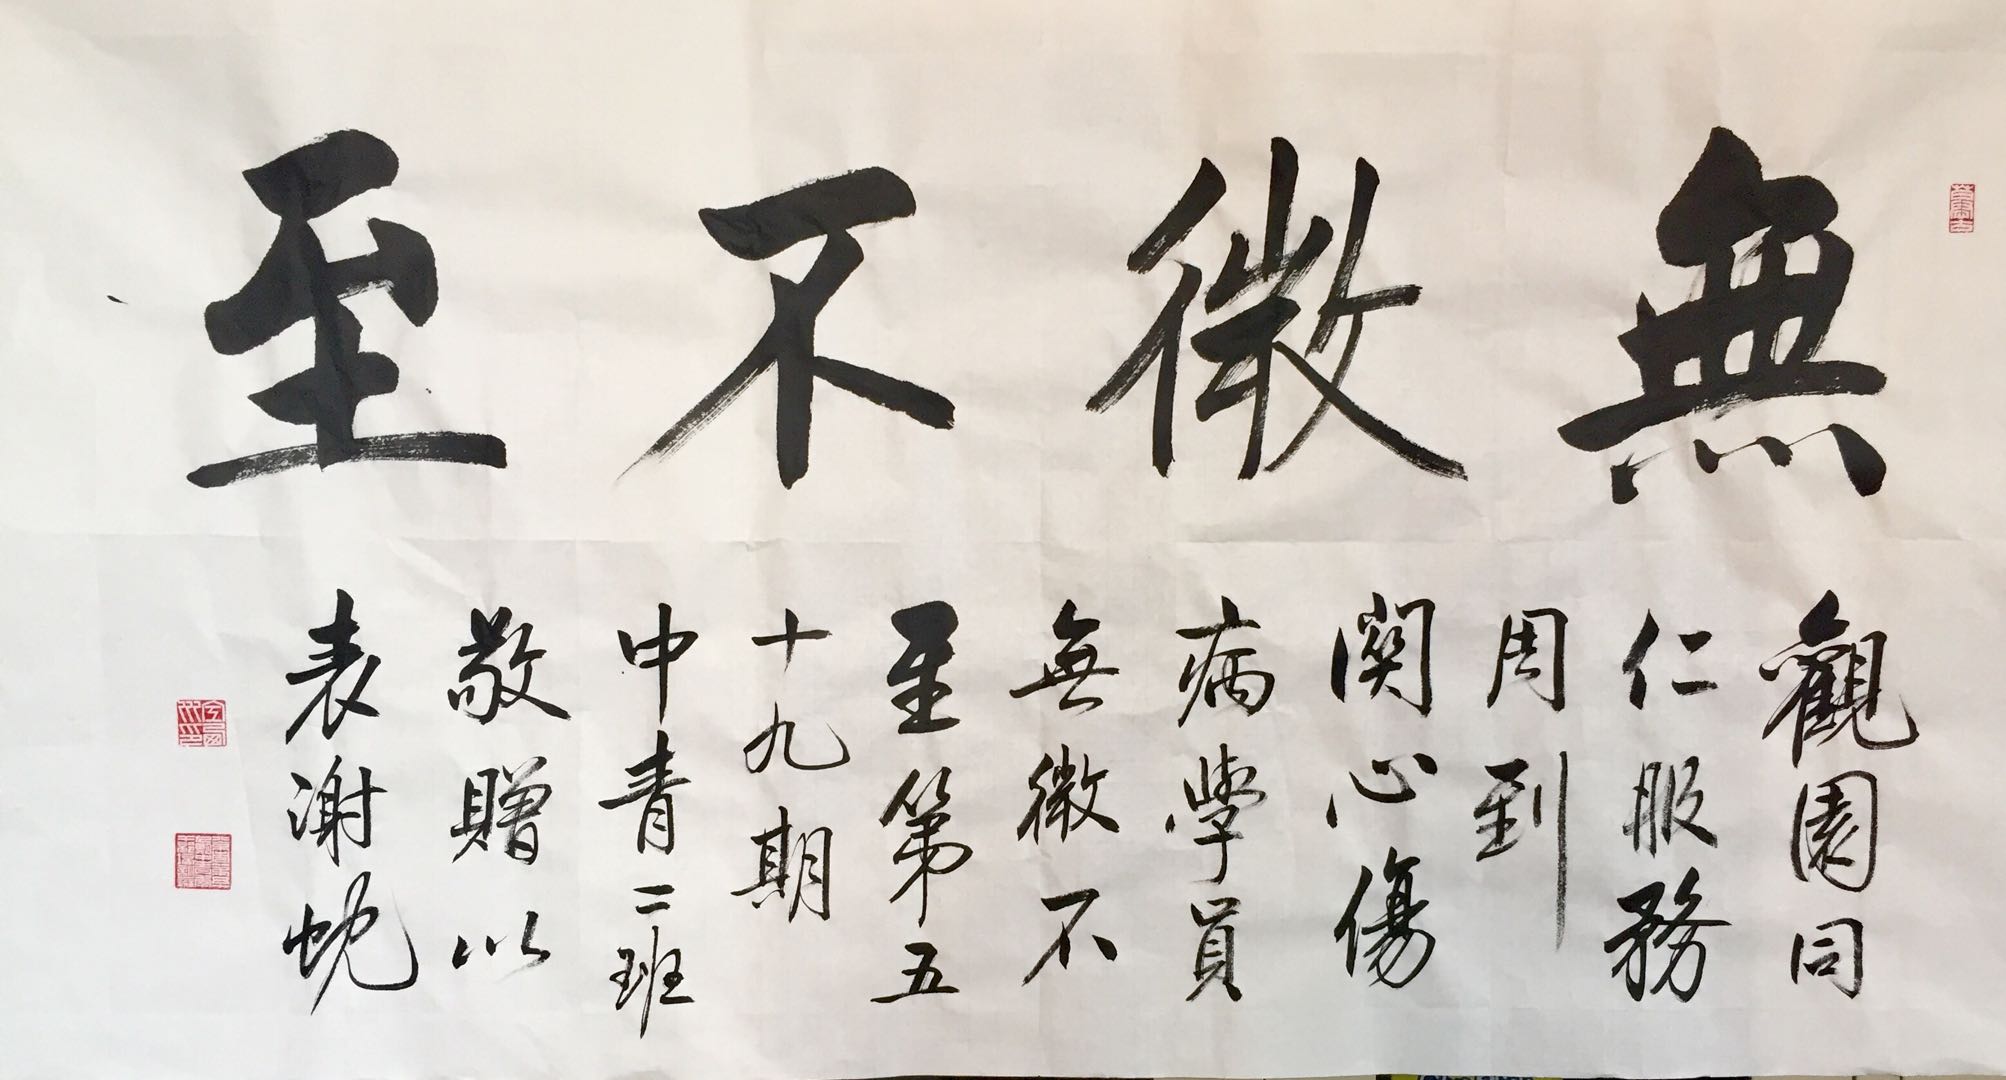 無微不至
觀園同
仁服務
周到
関心傷
病學員
無微不
至第五
十九期
中青二班
敬贈以
表謝忱